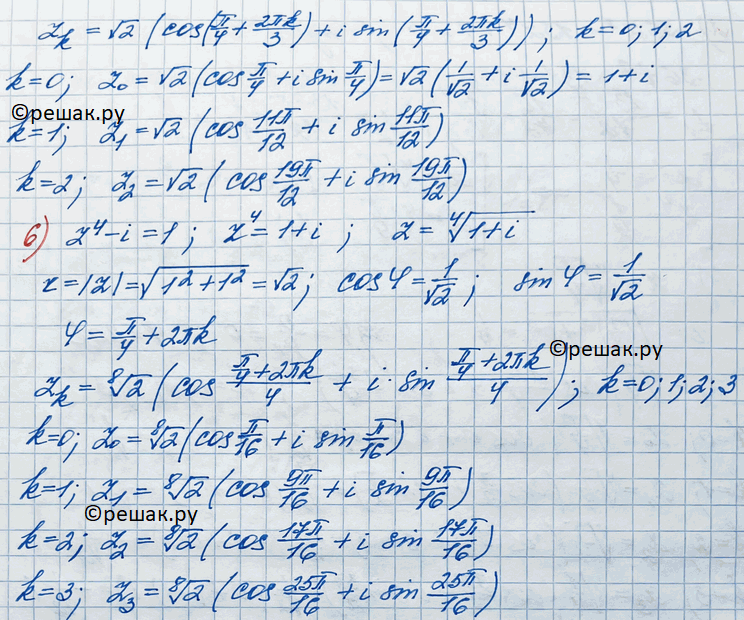 z_k = √2 (cos(π/4 + 2πk/3) + i sin (π/4 + 2πk/3)); k=0; 1; 2
k=0; z_0 = √2 (cos π/4 + i sin π/4) = √2 (1/√2 + i 1/√2) = 1+i
©решак.ру
k=1; z_1 = √2 (cos 11π/12 + i sin 11π/12)
k=2; z_2 = √2 (cos 19π/12 + i sin 19π/12)
б) z⁴ - i = 1; z⁴ = 1+i; z = ⁴√(1+i)
r = |z| = √(1² + 1²) = √2; cos φ = 1/√2; sin φ = 1/√2
φ = π/4 + 2πk
©решак.ру
z_k = ⁸√2 (cos (π/4 + 2πk)/4 + i · sin (π/4 + 2πk)/4); k=0; 1; 2; 3
k=0; z_0 = ⁸√2 (cos π/16 + i sin π/16)
k=1; z_1 = ⁸√2 (cos 9π/16 + i sin 9π/16)
©решак.ру
k=2; z_2 = ⁸√2 (cos 17π/16 + i sin 17π/16)
k=3; z_3 = ⁸√2 (cos 25π/16 + i sin 25π/16)